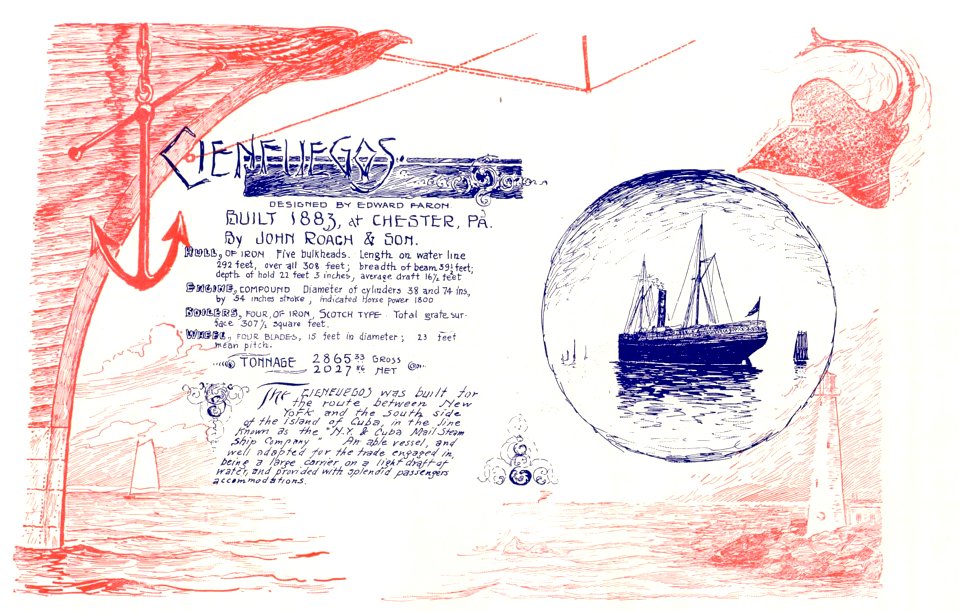 CIENFUEGOS.
DESIGNED BY EDWARD FARON.
BUILT 1883, at CHESTER, PA.
By JOHN ROACH & SON.
HULL, OF IRON Five bulkheads. Length on water line
292 feet, over all 308 feet; breadth of beam 39½ feet;
depth of hold 22 feet 3 inches, average draft 16½ feet
ENGINE, COMPOUND Diameter of cylinders 38 and 74 ins,
by 54 inches stroke, indicated Horse power 1800
BOILERS, FOUR, OF IRON, SCOTCH TYPE. Total grate sur-
face 307½ square feet.
WHEEL, FOUR BLADES, 15 feet in diameter; 23 feet
mean pitch.
TONNAGE 2865 33 GROSS
2027 86 NET
The CIENFUEGOS was built for
the route between New
York and the South side
of the Island of Cuba, in the line
Known as the "N.Y. & Cuba Mail Steam
Ship Company" An able vessel, and
well adapted for the trade engaged in,
being a large carrier on a light draft of
water, and provided with splendid passengers
accommodations.